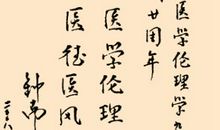 医学伦理学
廿周年
医学伦理
医德医风
钟南